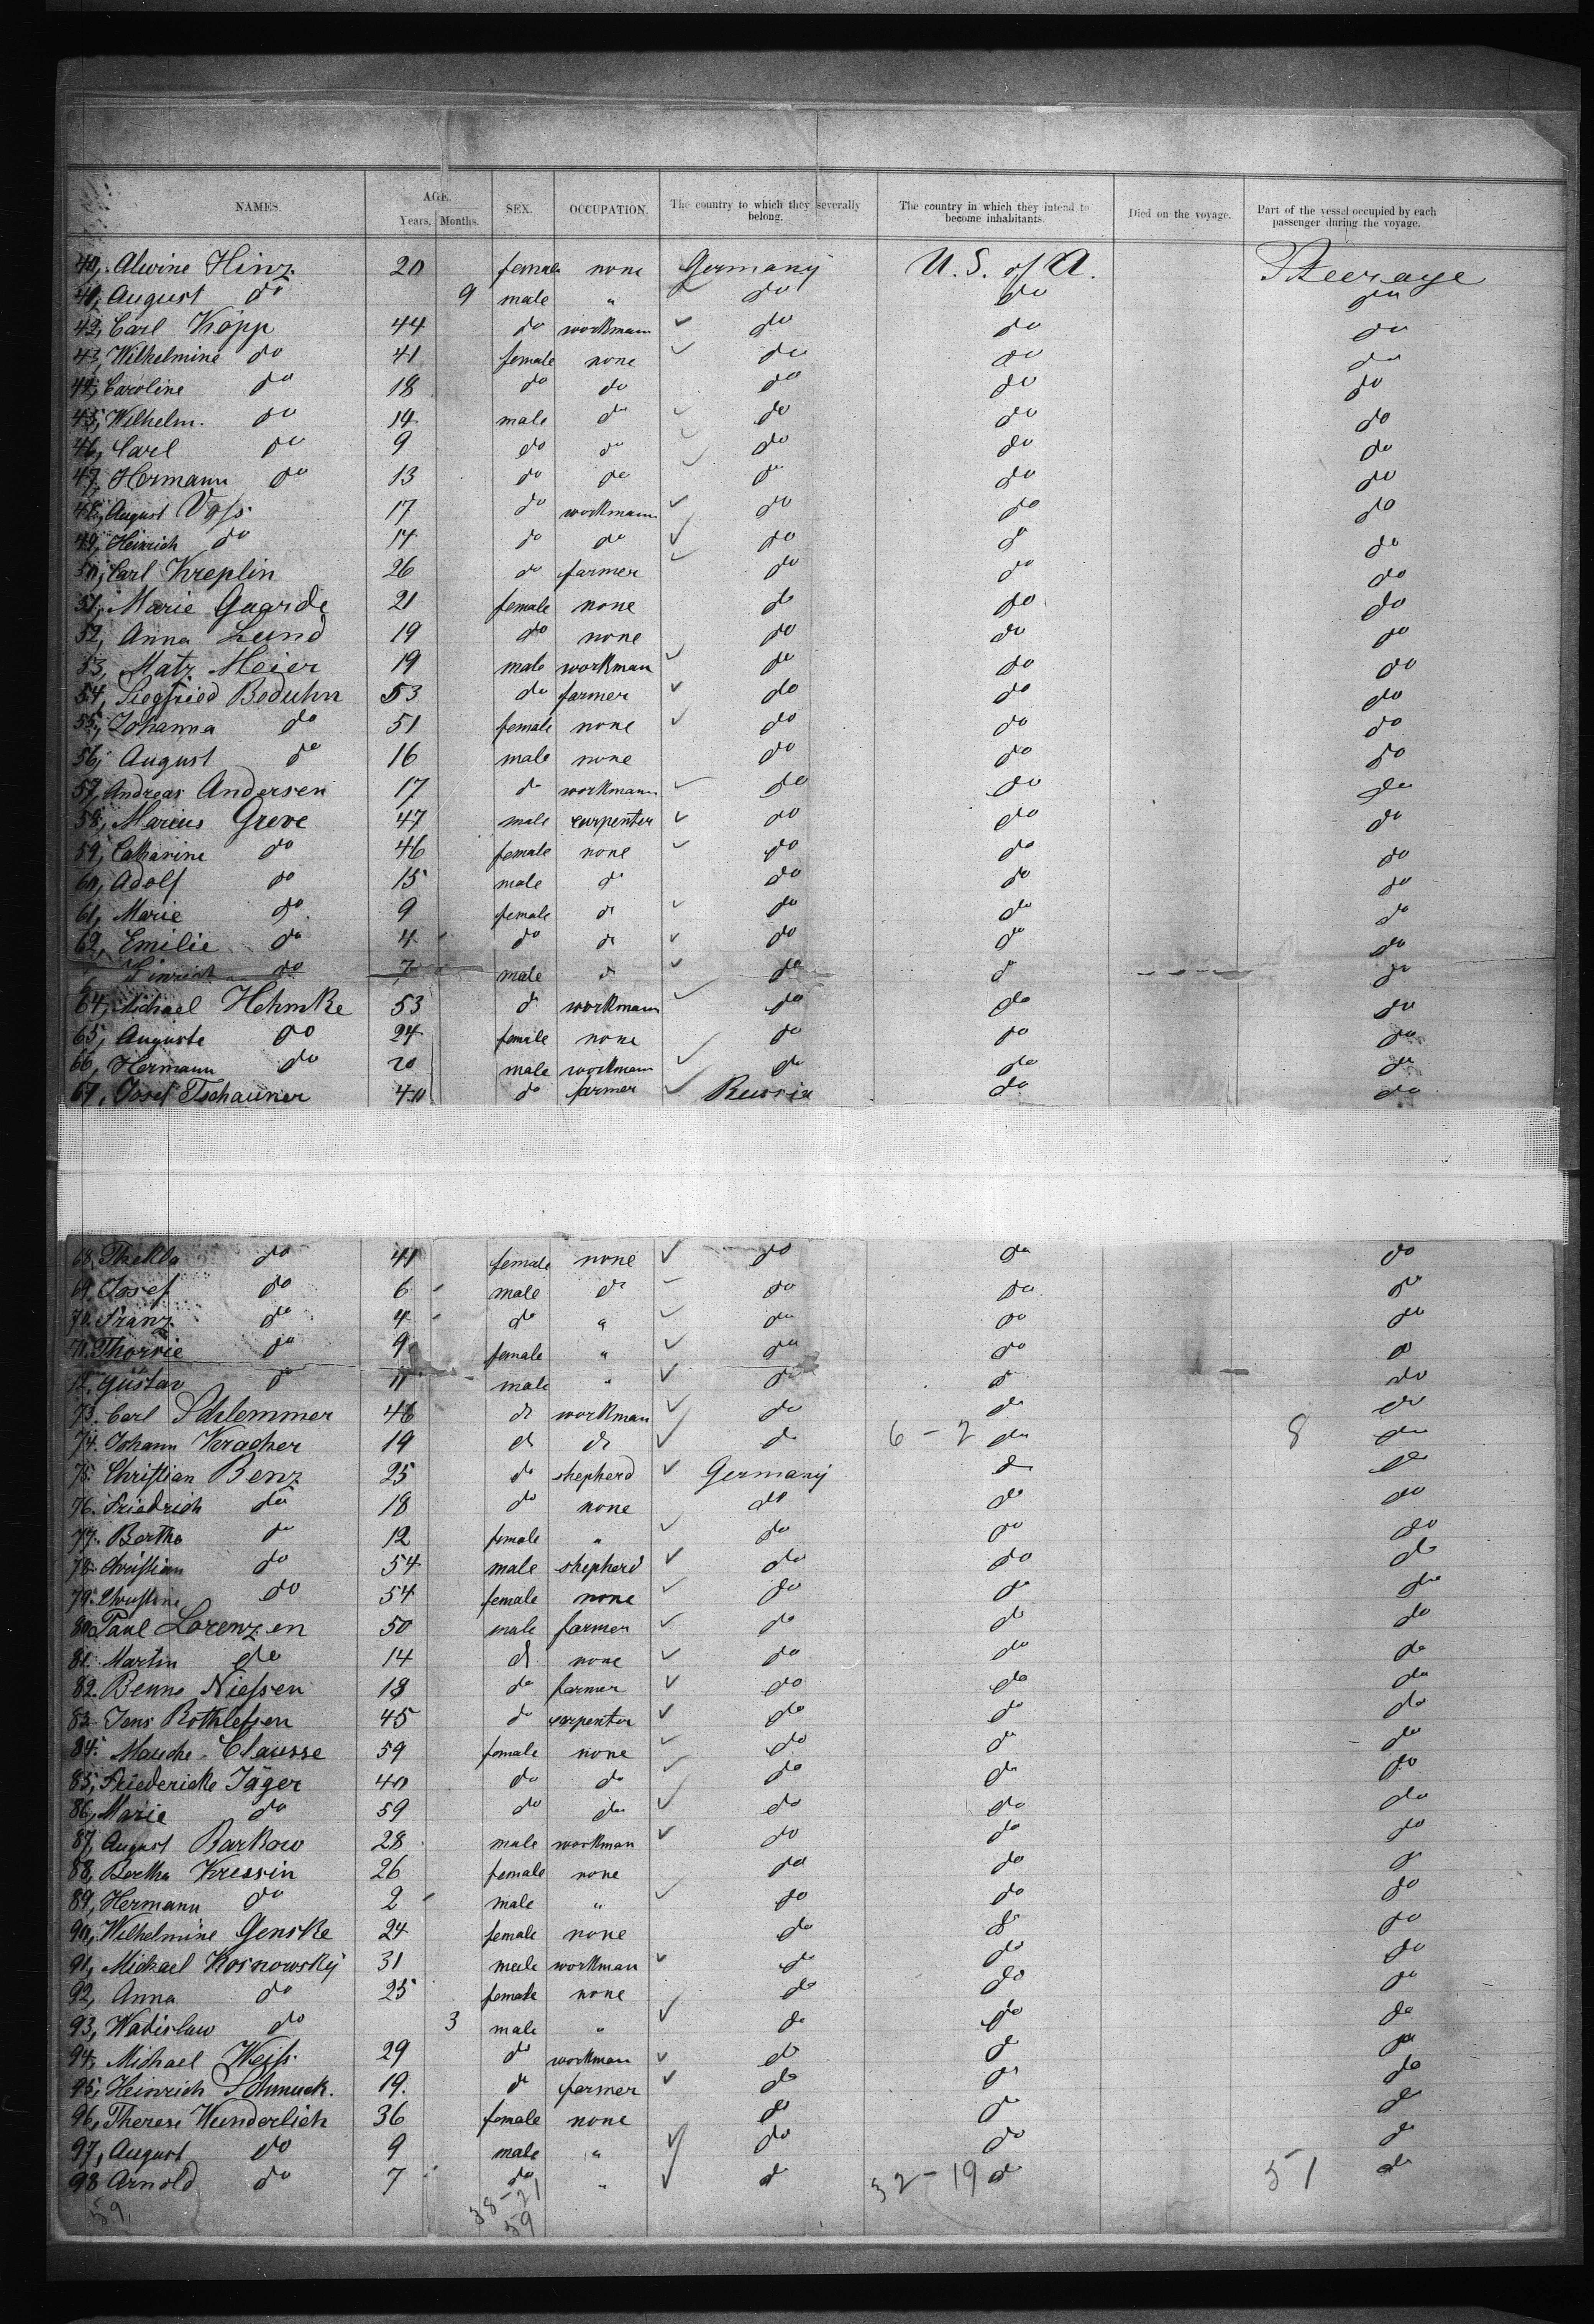 NAMES. AGE. Years. Months. SEX. OCCUPATION. The country to which they severally belong. The country in which they intend to become inhabitants. Died on the voyage. Part of the vessel occupied by each passenger during the voyage.
40, Alwine Hinz 20 female none Germany U. S. of A. Steerage
41, August do 9 male " do do do
42, Carl Köpp 44 do workmann do do do
43, Wilhelmine do 41 female none do do do
44, Caroline do 18 do do do do do
45, Wilhelm. do 14 male do do do do
46, Carl do 9 do do do do do
47, Hermann do 13 do do do do do
48, August Voss 17 do workmann do do do
49, Heinrich do 14 do do do do do
50, Carl Kreplin 26 do farmer do do do
51, Marie Gaarde 21 female none do do do
52, Anna Lund 19 do none do do do
53, Matz Meier 19 male workman do do do
54, Siegfried Beduhn 53 do farmer do do do
55, Johanna do 51 female none do do do
56, August do 16 male none do do do
57, Andreas Andersen 17 do workmann do do do
58, Marcus Greve 47 male carpenter do do do
59, Catharine do 46 female none do do do
60, Adolf do 15 male do do do do
61, Marie do 9 female do do do do
62, Emilie do 4 do do do do do
Hinrich do 7 male do do do do
64, Michael Hehmke 53 do workmann do do do
65, Auguste do 24 female none do do do
66, Hermann do 20 male workmann do do do
67, Josef Tschauner 40 do farmer Russia do do
68, Thekla do 41 female none do do do
69. Josef do 6 male do do do do
70. Franz do 4 do " do do do
71. do 9 female " do do do
72. Gustav do 11 male " do do do
73. Carl Schlemmer 46 do workman do do do
74. Johann Kracher 19 do do do 6 - 2 do 8 do
75. Christian Benz 25 do shepherd Germany do do
76. Friedrich do 18 do none do do do
77. Bertha do 12 female " do do do
78. Christian do 54 male shepherd do do do
79. Christine do 54 female none do do do
80. Paul Lorenzen 50 male farmer do do do
81. Martin do 14 do none do do do
82. Benno Niessen 18 do farmer do do do
83. Jens Rothlefsen 45 do carpenter do do do
84. Clausse 59 female none do do do
85, Friedericke Jäger 40 do do do do do
86, Marie do 59 do do do do do
87, August Barkow 28 male workman do do do
88, Bertha Kressin 26 female none do do do
89, Hermann do 2 male " do do do
90, Wilhelmine Genske 24 female none do do do
91, Michael Kosnowsky 31 male workman do do do
92, Anna do 25 female none do do do
93, Wadislaw do 3 male " do do do
94, Michael Weiss 29 do workman do do do
95, Heinrich Schmuck. 19. do farmer do do do
96, Therese Wunderlich 36 female none do do do
97, August do 9 male " do do do
98 Arnold do 7 do " do 32 - 19 do 51 do
59 38 - 21
59